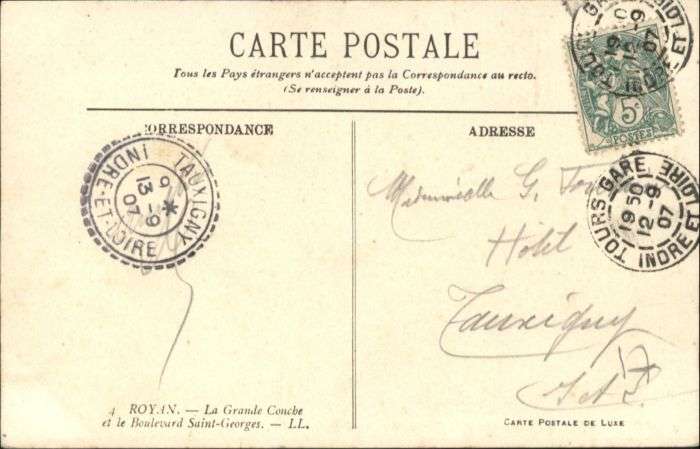 CARTE POSTALE
Tous les Pays étrangers n'acceptent pas la Correspondance au recto.
(Se renseigner à la Poste).
CORRESPONDANCE
ADRESSE
TOURS-GARE
19 50
12 - 9
07
INDRE ET LOIRE
5c
POSTES
TAUXIGNY
6
13 - 9
07
INDRE-ET-LOIRE
TOURS-GARE
19 50
12 - 9
07
INDRE ET LOIRE
Mademoiselle G.
Hotel
Tauxigny
I. et L.
4 ROYAN. — La Grande Conche
et le Boulevard Saint-Georges. — LL.
CARTE POSTALE DE LUXE